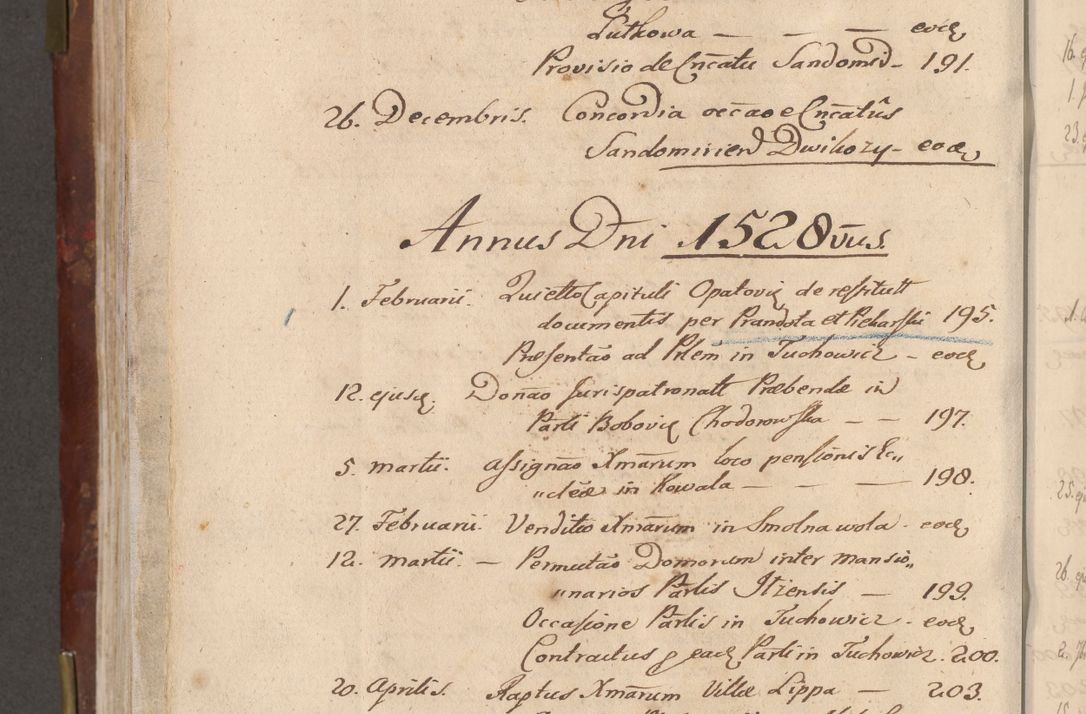 Lutkowa — — — eodȩ
Provisio de Cn̄catu Sandomid — 191.
26. Decembris. Concordia occāo e Cn̄catûs
Sandomirien Dwikozy — eodȩ
Annus Dni 1528vūs.
1. Februarii. Quiett Capituli Opatoviȩ de restitutt
documentis per Prandota et Piekarski 195.
Præsentāo ad Pblem in Tuchowicz — eodȩ
12. ejusȩ. Donāo Jurispatronatt Præbendæ in
Parli Boboviȩ Chodorowska — — 197.
5. martii. assignāo Xmārum loco pensionis Ec„
„cleæ in Kowala — — — 198.
27. Februarii. Venditio Xmārum in Smolna wola. eodȩ
12. martii. — Permutāo Domorum inter mansio„
„narios Parlis Itzensis — 199.
Occasione Parlis in Tuchowicz. eodȩ
Contractus ꝑ eadȩ Parli in Tuchowicz. 200.
20. Aprilis. Raptus Xmārum Villæ Lippa — 203.